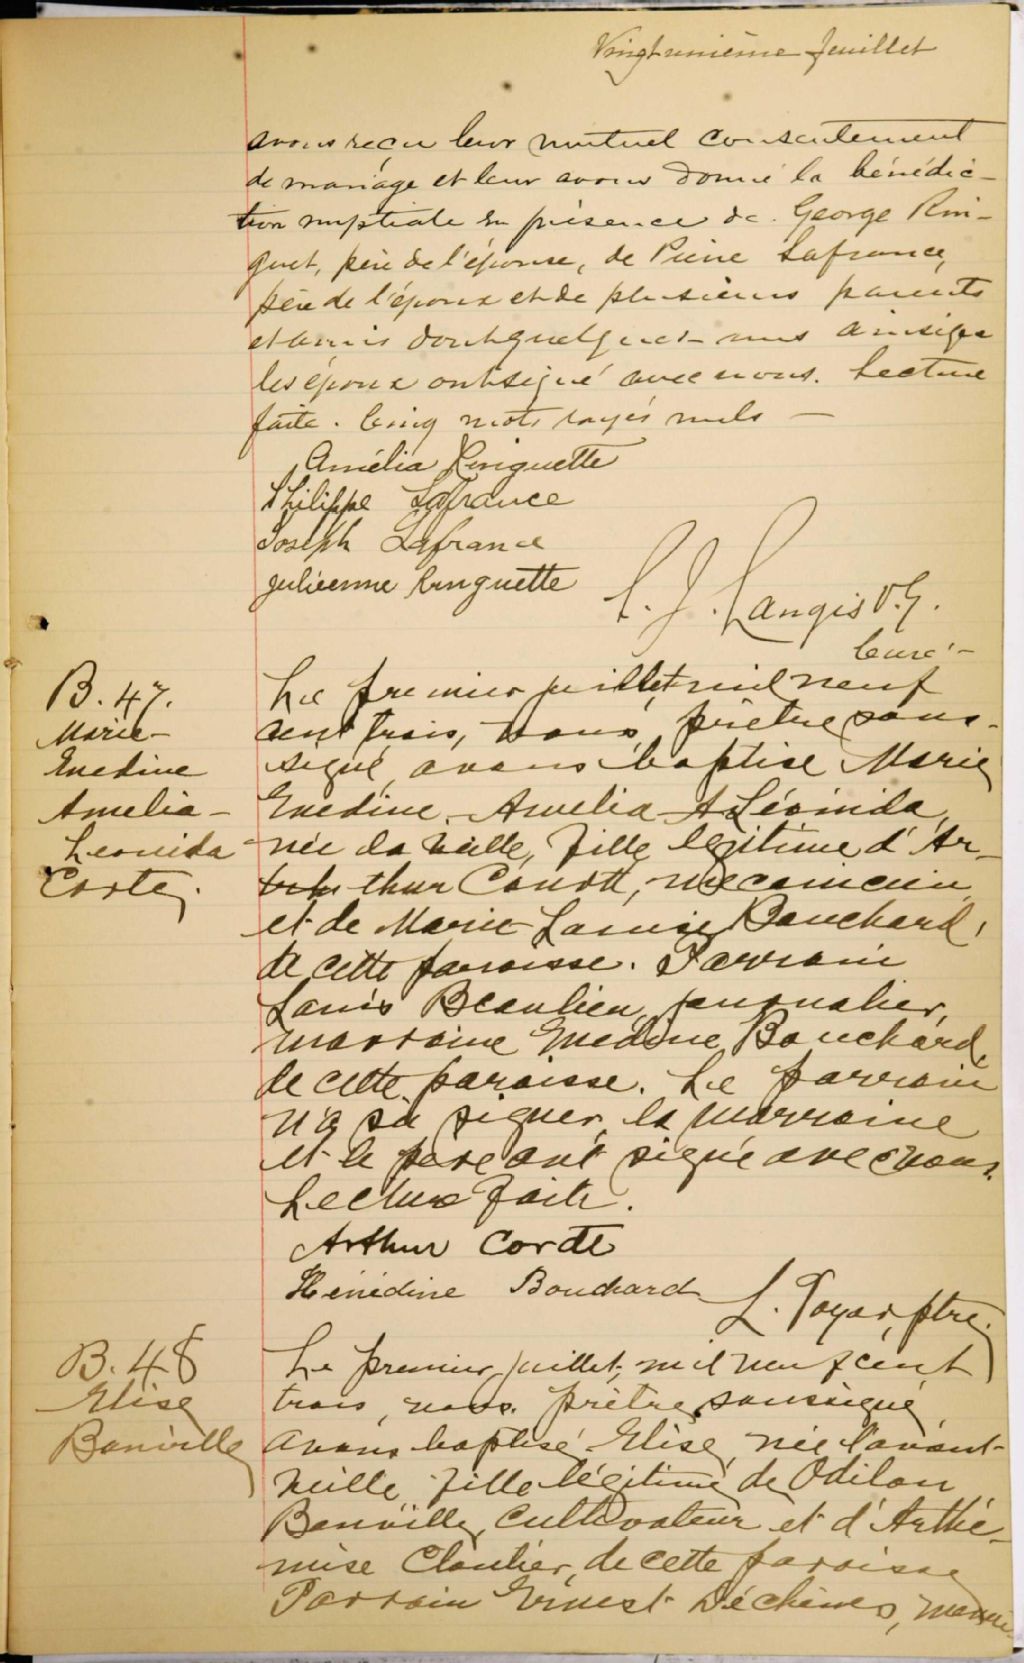 Vingt unième feuillet
avons reçu leur mutuel consentement
de mariage et leur avons donné la bénédic-
tion nuptiale en présence de George Rin-
guet, père de l'épouse, de Pierre Lafrance,
père de l'époux et de plusieurs parents
et amis dont quelques-uns ainsi que
les époux ont signé avec nous. Lecture
faite. Cinq mots rayés nuls —
Amélia Ringuette
Philippe Lafrance
Joseph Lafrance
Julienne Ringuette
L. J. Langis V.G.
Curé -
B. 47.
Marie-
Enedine
Amelia-
Leonida
Corte.
Le premier juillet mil neuf
cent trois, nous, prêtre sous-
signé, avons baptisé Marie
Enedine Amelia Léonida,
née la veille, fille légitime d'Ar-
thur , mécanicien
et de Marie Louise Bouchard,
de cette paroisse. Parrain
Louis Beaulieu, journalier,
marraine Enedine Bouchard,
de cette paroisse. Le parrain
n'a su signer, la marraine
et le père ont signé avec nous.
Lecture faite.
Arthur Corote
Hénédine Bouchard
L. , ptre.
B. 48
Elise
Banville
Le premier juillet, mil neuf cent
trois, nous, prêtre soussigné,
avons baptisé Elise, née l'avant-
veille, fille légitime de Odilon
Banville, cultivateur et d'Arthé-
mise Cloutier, de cette paroisse
Parrain Ernest Déchènes,